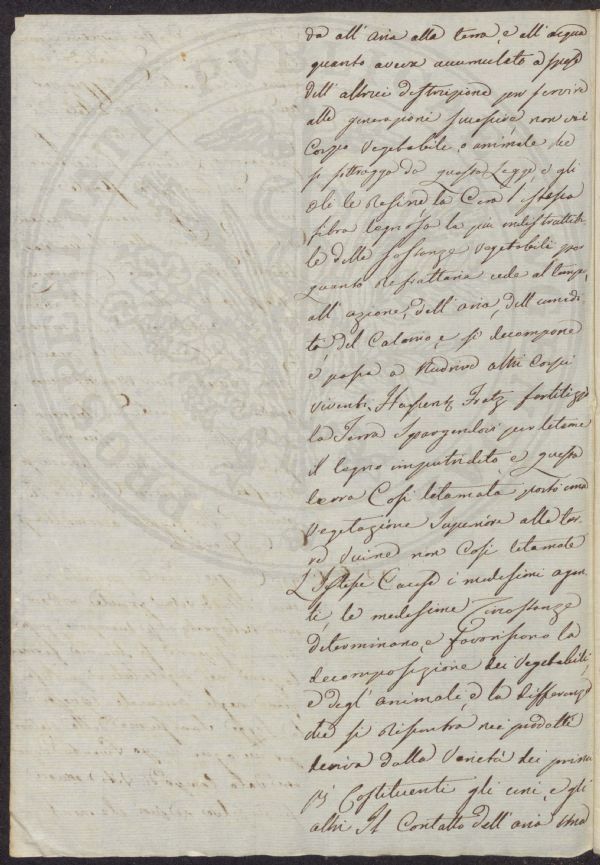 da all' aria alla terra, e all' acqua
quanto aveva accumulato a spese
dell' altrui distruzione per servire
alle generazioni successive, non vi è
Corpo Vegetabile, o animale, che
si sottragga da questa Legge, e gli
oli le Resine, la Cera l' istessa
fibra legnosa la più indistruttibi-
le delle sostanze Vegetabili per
quanto Refrattaria cede al tempo,
all' azione, dell' aria, dell' umidi-
tà del Calorico, e si decompone
e passa a Nudrire altri Corpi
viventi. Hassent Fratz fertilizzò
la Terra spargendovi per letame
il legno imputridito, e questa
terra Così letamata portò una
Vegetazione Superiore alle ter-
re Vicine non Così letamate
L' Istesse Cause i medesimi agen-
ti, le medesime Circostanze
determinano, e favoriscono la
decomposizione dei Vegetabili,
e degl' animali, e la differenza
che si Riscontra nei prodotti
deriva dalla Varietà dei princi-
pj Costituenti gli uni, e gli
altri Il Contatto dell' aria
PHILOSOPHIC
PVBL